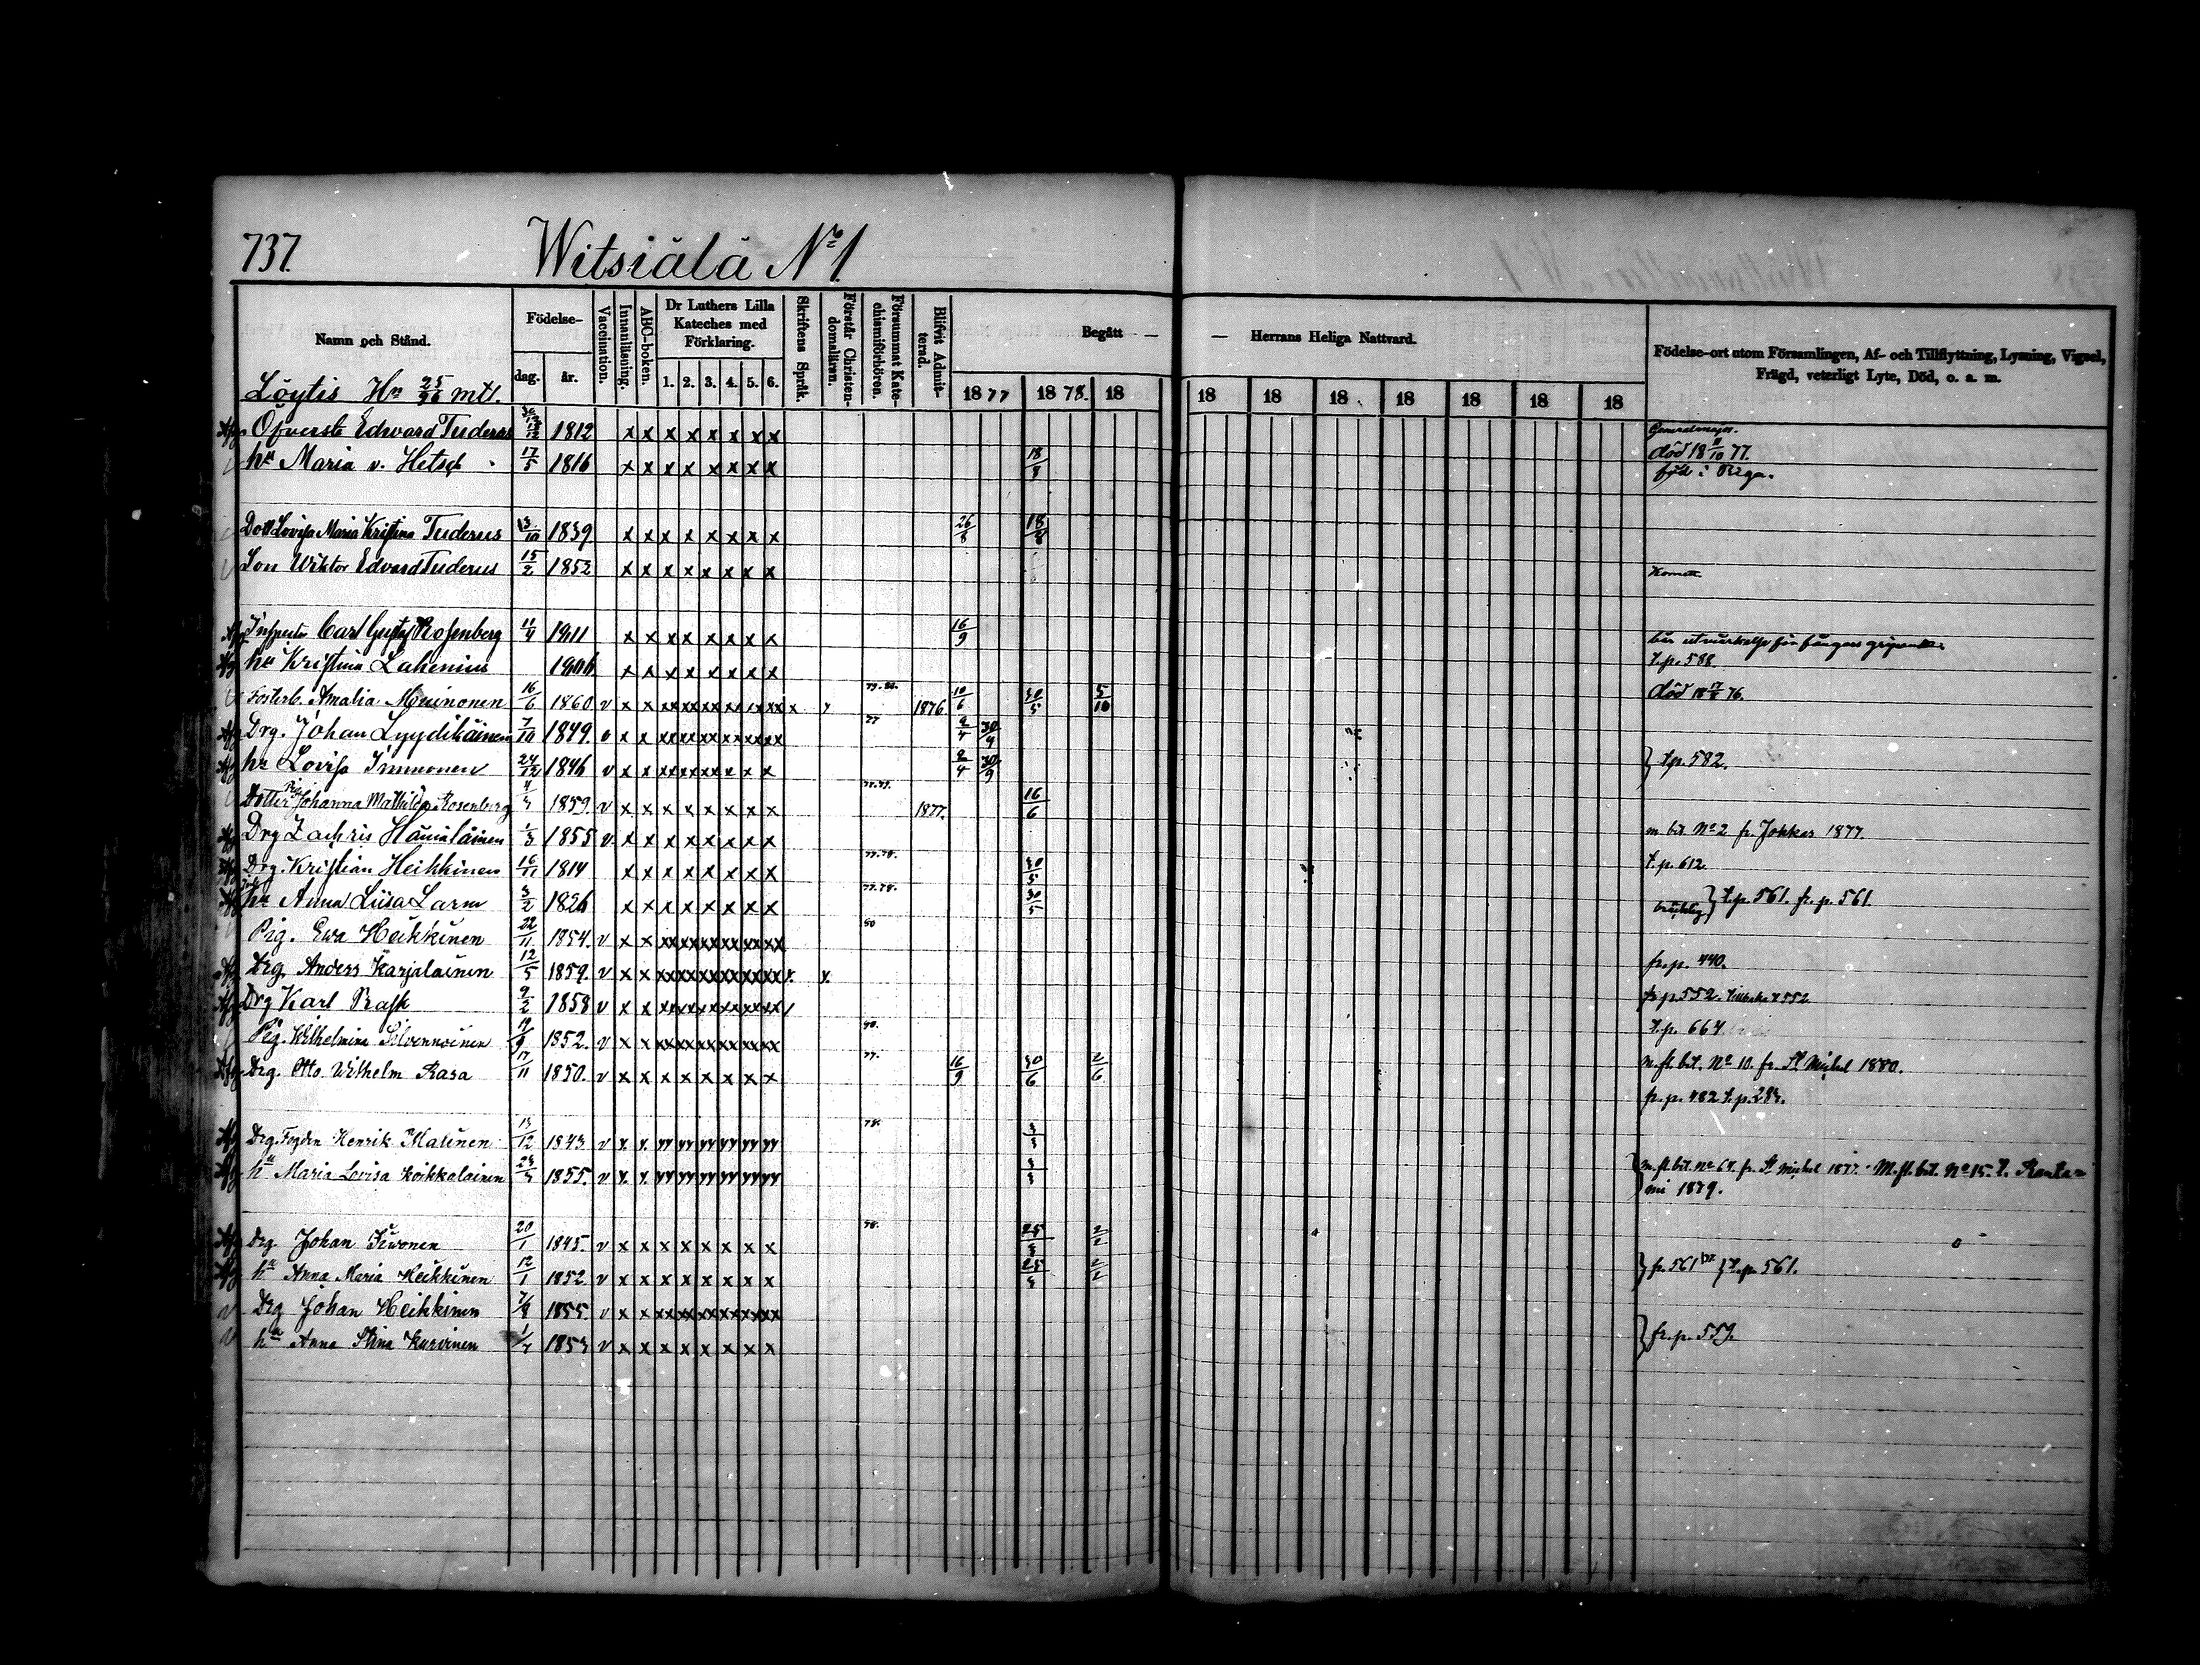 737.
Witsiälä No 1
Namn och Stånd.
Födelse-
dag.
år.
Vaccination.
Innanläsning.
ABC-boken.
Dr Luthers Lilla Kateches med Förklaring.
1. 2. 3. 4. 5. 6.
Skriftens Språk.
Förstår Christendomsläran.
Försummat Katechismiförhören.
Blifvit Admitterad.
Begått — — Herrans Heliga Nattvard.
1877 1878. 18 18 18 18 18 18 18 18
Födelse-ort utom Församlingen, Af- och Tillflyttning, Lysning, Vigsel, Frägd, veterligt Lyte, Död, o. a. m.
Löytis Hn 25/96 mtl.
Öfverste Edward Tuderus 1812 x x x x x x x x Generalmajor. död 18 11/10 77.
hu Maria v. Hetsch 17/5 1816 x x x x x x x x 18/8 född i Riga.
Dott Lovisa Maria Kristina Tuderus 13/10 1839 x x x x x x x x 26/8 18/8
Son Wiktor Edvard Tuderus 15/2 1852 x x x x x x x x Kornett.
Inspector Carl Gustaf Rosenberg 11/4 1811 x x x x x x x x 16/9
hu Kristina Lahenius 1806 x x x x x x x x t.p. 588
Fosterb. Amalia Muinonen 16/6 1860 v x x xx xx xx xx xx xx x 1876 10/6 30/5 5/10 död 18 76.
Drg. Johan Lyydikäinen 7/10 1849. x x xx xx xx xx xx xx 77 2/4 30/9
hu Lovisa Immonen 24/12 1846 v x x xx xx xx x x x 2/4 30/9 } t.p. 582.
Dotter Pig. Johanna Mathilda Rosenberg 1859. v x x x x x x x x 1877. 16/6
Drg Zachris Hämäläinen 1/3 1855 v x x x x x x x x m. bet. No 2 fr. Jokkas 1877.
Drg. Kristian Heikkinen 16/11 1814 x x x x x x x x 77.78. 30/5 t.p. 612.
hu Anna Liisa Larm 3/2 1826 x x x x x x x x 77.78. 30/5 } t.p. 561. fr. p. 561.
Pig. Ewa Heikkinen 22/11 1854. v x x xx xx xx xx xx xx 80
Drg. Anders Karjalainen 12/5 1859. v x x xx xx xx xx xx xx x. x. fr. p. 440.
Drg Karl Rask 9/2 1858 v x x xx xx xx xx xx xx fr p 552.
Pig. Wilhelmina Silvennoinen 1852. v x x xx xx xx xx xx xx 80. t.p. 664
Drg. Otto Wilhelm Rasa 17/11 1850. v x x x x x x x x 77. 16/9 30/6 2/6 m. fl. bet. No 10. fr. St Michel 1880.
fr. p. 482 t.p. 283.
Drg. Fogden Henrik Matinen 13/12 1843 v x x 78. 3/3
hu Maria Lovisa Koikkalainen 1855. v x x 3/3 } m. fl. bet. No 64. fr. St Michel 1877. M. fl. bet. No 15. t. Rantasalmi 1879.
Drg Johan Tiivonen 20/1 1845. v x x x x x x x x 78. 25/3 2/2
hu Anna Maria Heikkinen 12/1 1852. v x x x x x x x x 25/3 2/2 } fr. 561 } t.p. 561.
Drg Johan Heikkinen 7/8 1855. v x x xx xx xx xx xx xx
hu Anna Stina Kurvinen 1853 v x x x x x x x x } fr. p. 559.